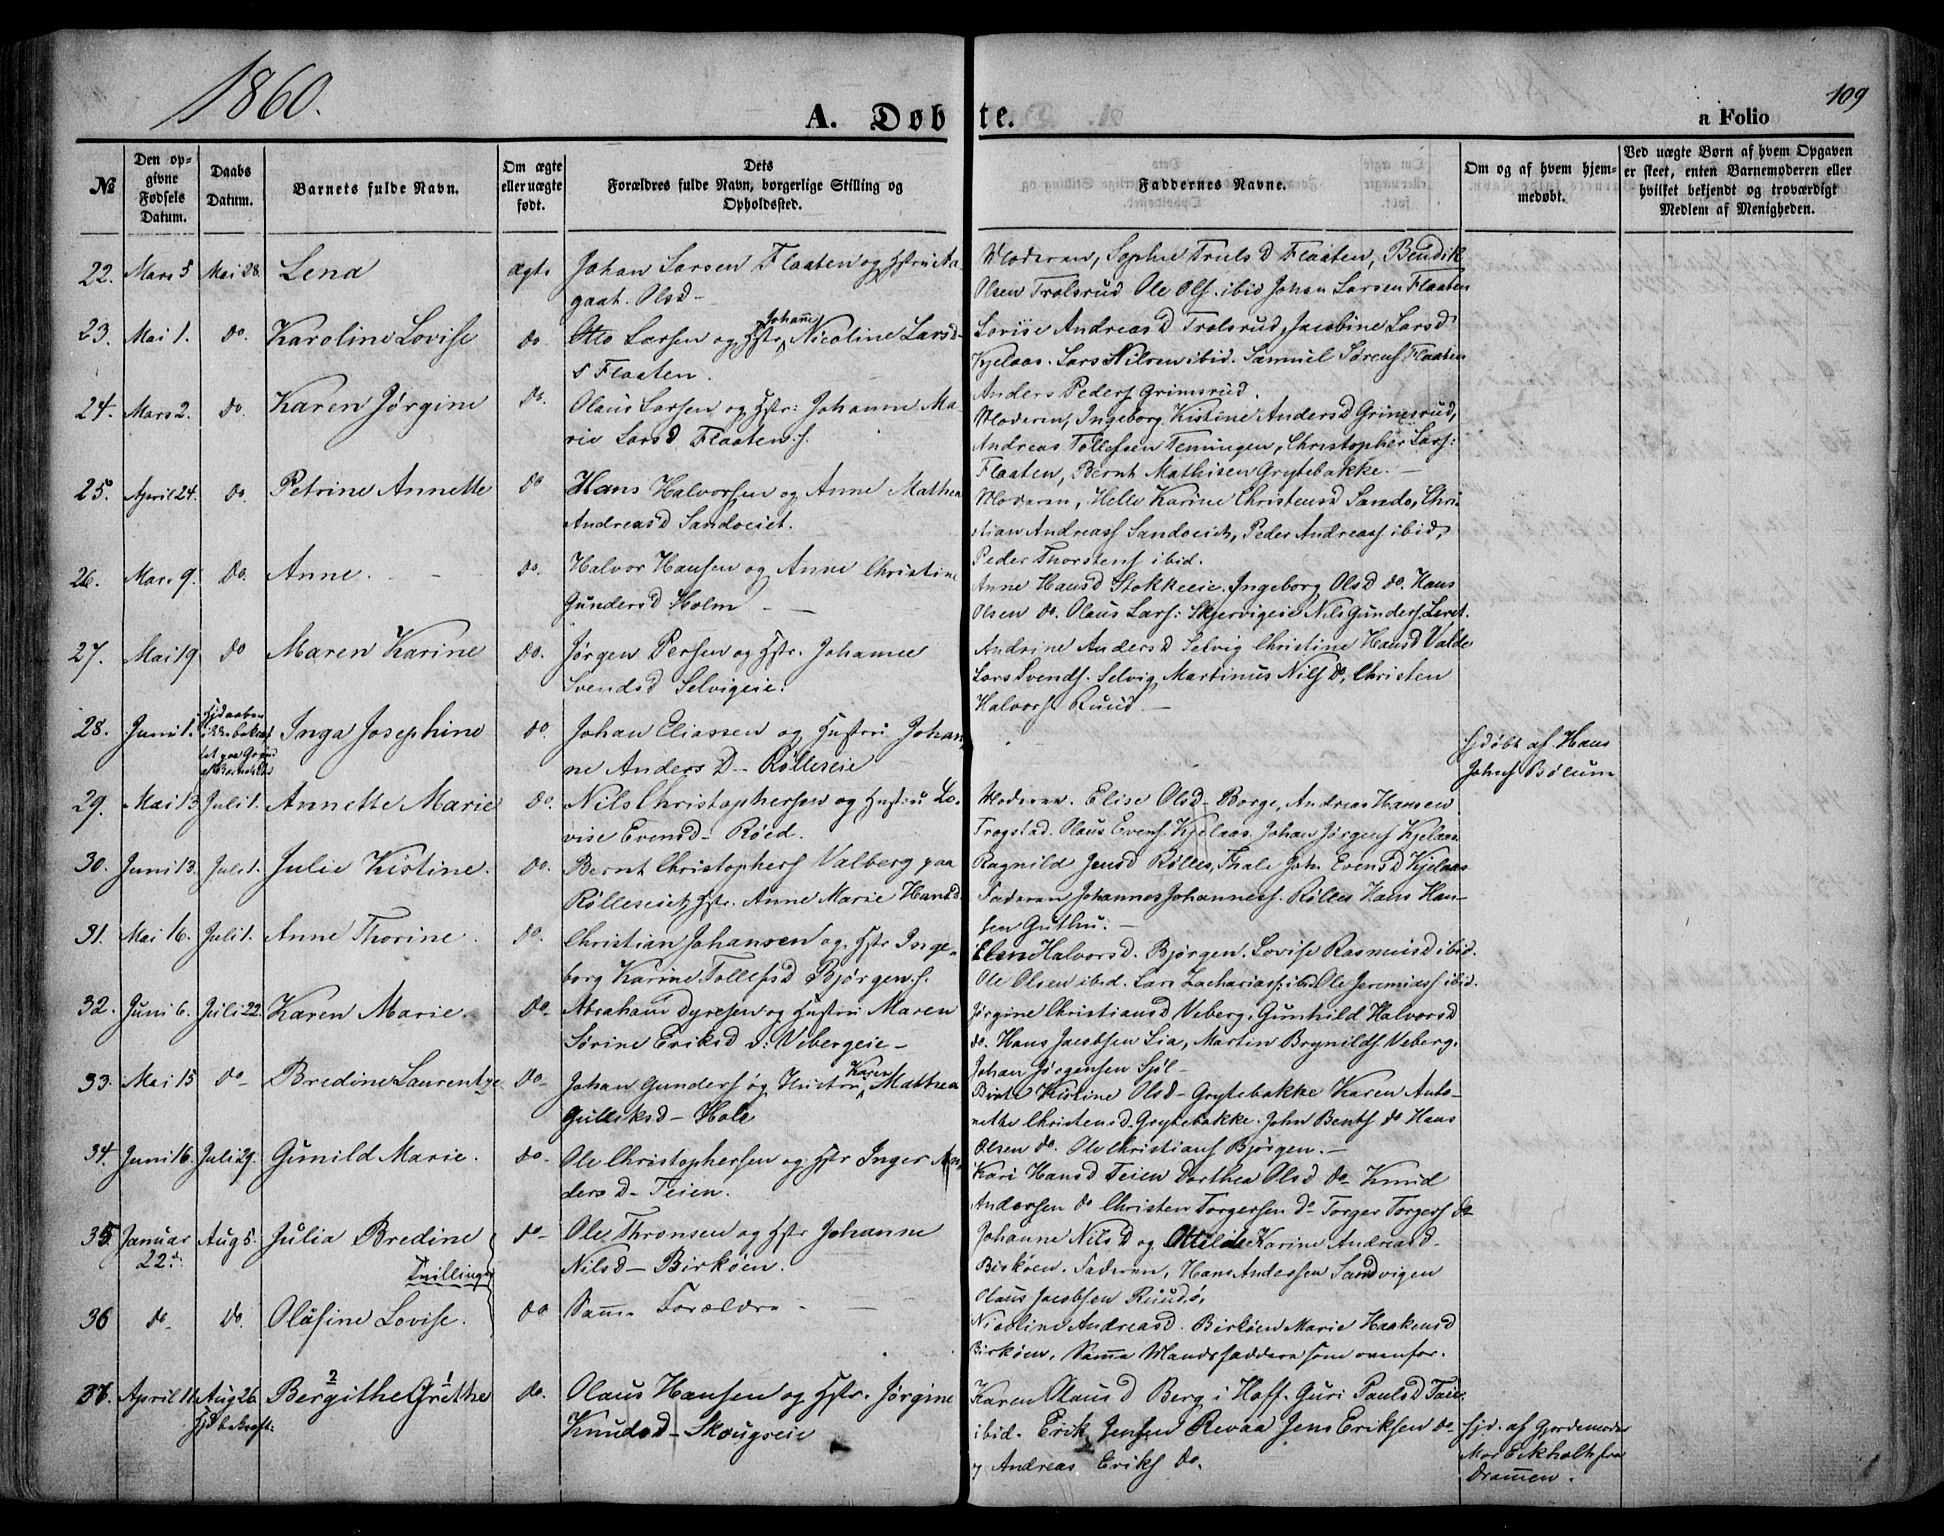 1860.
109
A. Døbte.
a Folio
№
Den op-
givne
Fødsels
Datum.
Daabs
Datum.
Barnets fulde Navn.
Om ægte
eller uægte
født.
Dets
Forældres fulde Navn, borgerlige Stilling og
Opholdssted.
Faddernes Navne.
Om og af hvem hjem-
medøbt.
Ved uægte Børn af hvem Opgaven
er skeet, enten Barnemoderen eller
hvilket bekjendt og troværdigt
Medlem af Menigheden.
22. Mars 5 Mai 28. Lena ægte Johan Larsen Flaaten og Hstru Aa-
gaat. Olsd-
Moderen, Sophie Truls D Flaaten, Bendik
Olsen Trolsrud Ole Ols. ibid Johan Larsen Flaaten
23. Mai 1. do. Karoline Lovise do Otto Larsen og Hstr, Johanne Nicoline Larsd-
s Flaaten.
Lovise Andreas D Trolsrud, Jacobine Larsd
Kjelaas. Lars Nilsen ibid. Samuel Sørens. Flaaten
Anders Peders Grimsrud.
24. Mars 2. do. Karen Jørgine do. Olaus Larsen og Hstr: Johanne Ma-
rie Larsd Flaaten.s.
Moderen, Ingeborg Kistine Anders D Grimsrud,
Andreas Tollefsen Temingen, Christopher Lars:
Flaaten, Bernt Mathisen Grytebakke. -
25. April 24. do. Petrine Annette do Hans Halvorsen og Anne Mathea
Andreas D Sandoeiet.
Moderen, Helle Karine Christensd Sando, Chri-
stian Andreass Sandoeiet, Peder Andreass ibid,
Peder Thorstens ibid.
26. Mars 9. do. Anne. do. Halvor Hansen og Anne Christine
Gundersd Holm -
Anne Hansd Stokkeeie. Ingeborg Olsd do. Hans
Olsen do. Olaus Lars: Skjervigeie Nils Gunders. Leret.
27. Mai 19. do Maren Karine do. Jørgen Persen og Hstr. Johanne
Svendsd Selvigeie.
Andrine Anders D Selvig Christine Hansd Valde
Lars Svends. Selvig, Martinus Nils do, Christen
Halvors Ruud -
28. Juni 1. Inga Josephine do. Johan Eliassen og Hustru Johan-
ne Anders D - Rølleseie
Hjdøbt af Hans
Johns Bølum
29. Mai 13. Juli 1. Annette Marie do. Nils Christophersen og Hustru Lo-
vise Evensd- Røed.
Moderen. Elise Olsd- Borge, Andreas Hansen
Trogstad. Olaus Evens. Kjelaas. Johan Jørgens Kjelaas
30. Juni 13. Juli 1. Julie Kistine. do. Bernt Christophers Valberg paa
Rølleseiet, Hstr. Anne Marie Hansd
Ragnild Jensd Rølles, Thale Joh. Evensd Kjelaas
Faderen Johannes Johannes. Rølles Hans Han-
sen Guthu. -
31. Mai 16. Juli 1. Anne Thorine. do. Christian Johansen og Hstr Inge-
borg Karine Tollefsd Bjørgen.s.
Elen Halvorsd. Bjørgen. Lovise Rasmusd ibid.
Ole Olsen ibid. Lars Zachariass: ibid Ole Jeremiass ibid.
32. Juni 6. Juli 22. Karen Marie. do- Abraham Dyresen og Hustru Maren
Sørine Eriksd v: Vebergeie -
Jørgine Christiansd Veberg. Gunhild Halvorsd
do. Hans Jacobsen Lia, Martin Brynilds. Veberg.
Johan Jørgensen Sjøl -
33. Mai 15 do- Bredine Laurentze do- Johan Gunders og Hustru Karen Mathea
Gulliksd - Hole
Birte Kistine Olsd- Grytebakke Karen Anto-
nette Christensd. Grytebakke. John Bents do Hans
Olsen do. Ole Christians Bjørgen. -
34. Juni 16. Juli 29. Gunild Marie. do- Ole Christophersen og Hstr Inger An-
dersd- Teien.
Kari Hansd Teien Dorthea Olsd do- Knud
Andersen do Christen Torgersen do- Torger Torgers do
35. Januar 22d: Aug 5. Julia Bredine do- Ole Thronsen og Hstr Johanne
Tvillinger Nilsd- Birkøen.
Johanne Nilsd og Ottilde Karine Andreasd-
Birkøen. Faderen, Hans Andersen Sandvigen
Olaus Jacobsen Ruudø,
36 do- do. Olafine Lovise. do Samme Forældre -
Nicoline Andreasd. Birkøen Marie Haakensd
Birkøen. Samme Mandsfaddere som ovenfor.
37. April 11. Aug 26. Bergithe Grethe do. Olaus Hansen og Hstr. Jørgine
Hjd bekræft: Knudsd- Skougseie
Karen Olausd Berg i Hoff. Guri Paulsd Faie
ibid. Erik Jensen Revaa Jens Eriksen do-
og Andreas Eriks do.
Hjd. af Gjordemoder
Mor Eekholt fra
Dramen.